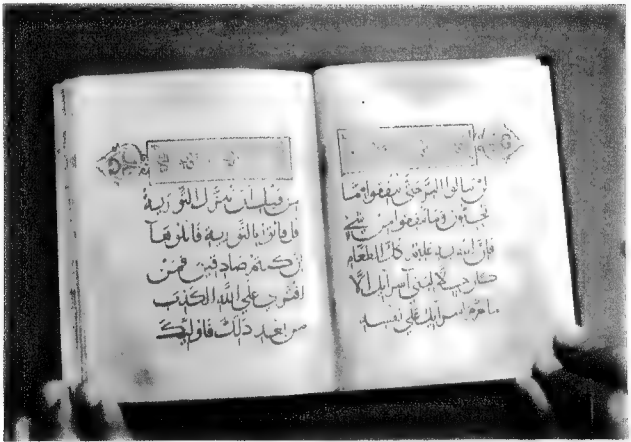 لن تنالوا البر حتى تنفقوا مما
تحبون وما تنفقوا من شيء
فإن الله به عليم كل الطعام
كان حلا لبني إسرآيل إلا
ما حرم إسرآيل على نفسه
من قبل أن تنزل التورية
قل فاتوا بالتورية فاتلوهآ
إن كنتم صادقين فمن
افترى على الله الكذب
من بعد ذلك فاولئك